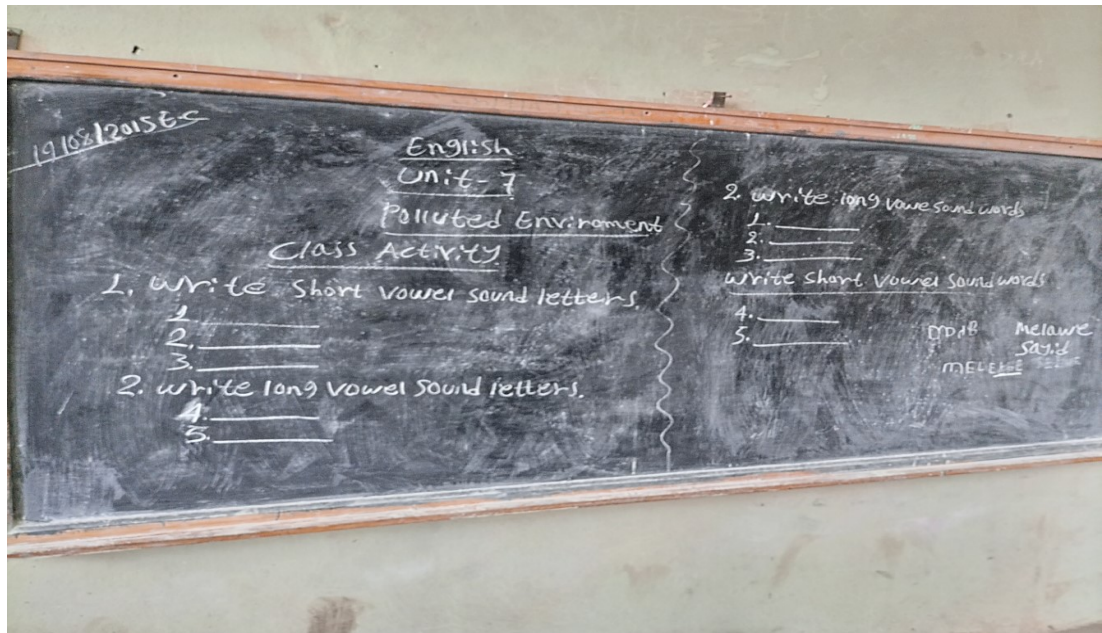 19/08/2015 E.C
English
Unit-7
Polluted Enviroment
Class Activity
1. Write short vowel sound letters.
1. ________
2. ________
3. ________
2. Write long vowel sound letters.
4. ________
5. ________
2. Write long vowe sound words
1. ________
2. ________
3. ________
Write short vowel sound words
4. ________
5. ________
Melawe
Sayid